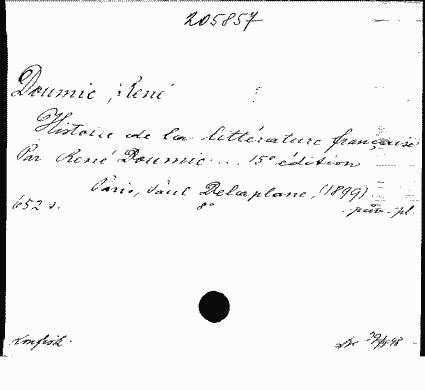 205857
Doumic, René
Histoire de la littérature française
Par René Doumic... 15e édition
Paris, Paul Delaplane, (1899)
652 s. 8°